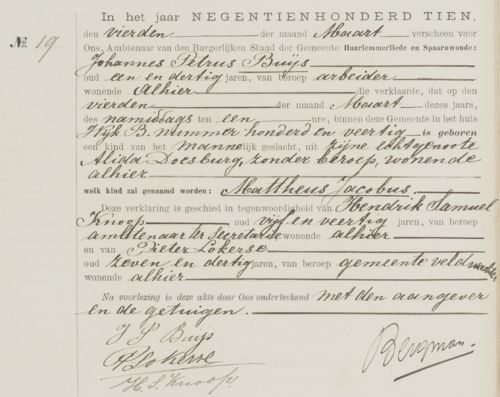 In het jaar NEGENTIENHONDERD TIEN,
den vierden der maand Maart verscheen voor
No. 19 Ons, Ambtenaar van den Burgerlijken Stand der Gemeente Haarlemmerliede en Spaarnwoude:
Johannes Petrus Buijs
oud een en dertig jaren, van beroep arbeider
wonende Alhier die verklaarde, dat op den
vierden der maand Maart dezes jaars,
des namiddags ten een ure, binnen deze Gemeente in het huis
Wijk B. nummer honderd en veertig is geboren
een kind van het mannelijk geslacht, uit zijne echtgenoote
Alida Doesburg, zonder beroep, wonende
alhier
welk kind zal genaamd worden: Mattheus Jacobus
Deze verklaring is geschied in tegenwoordigheid van Hendrik Samuel
Knoop oud vijf en veertig jaren, van beroep
ambtenaar ter Secretarie wonende alhier
en van Pieter Lokerse
oud zeven en dertig jaren, van beroep gemeente veldwachter
wonende alhier
Na voorlezing is deze akte door Ons onderteekend met den aangever
en de getuigen.
J P Buijs
P Lokerse
H. S. Knoop.
Bergman.